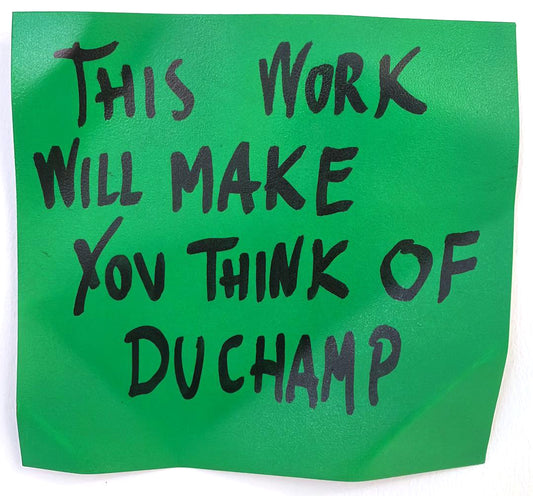 THIS WORK
WILL MAKE
YOU THINK OF
DUCHAMP